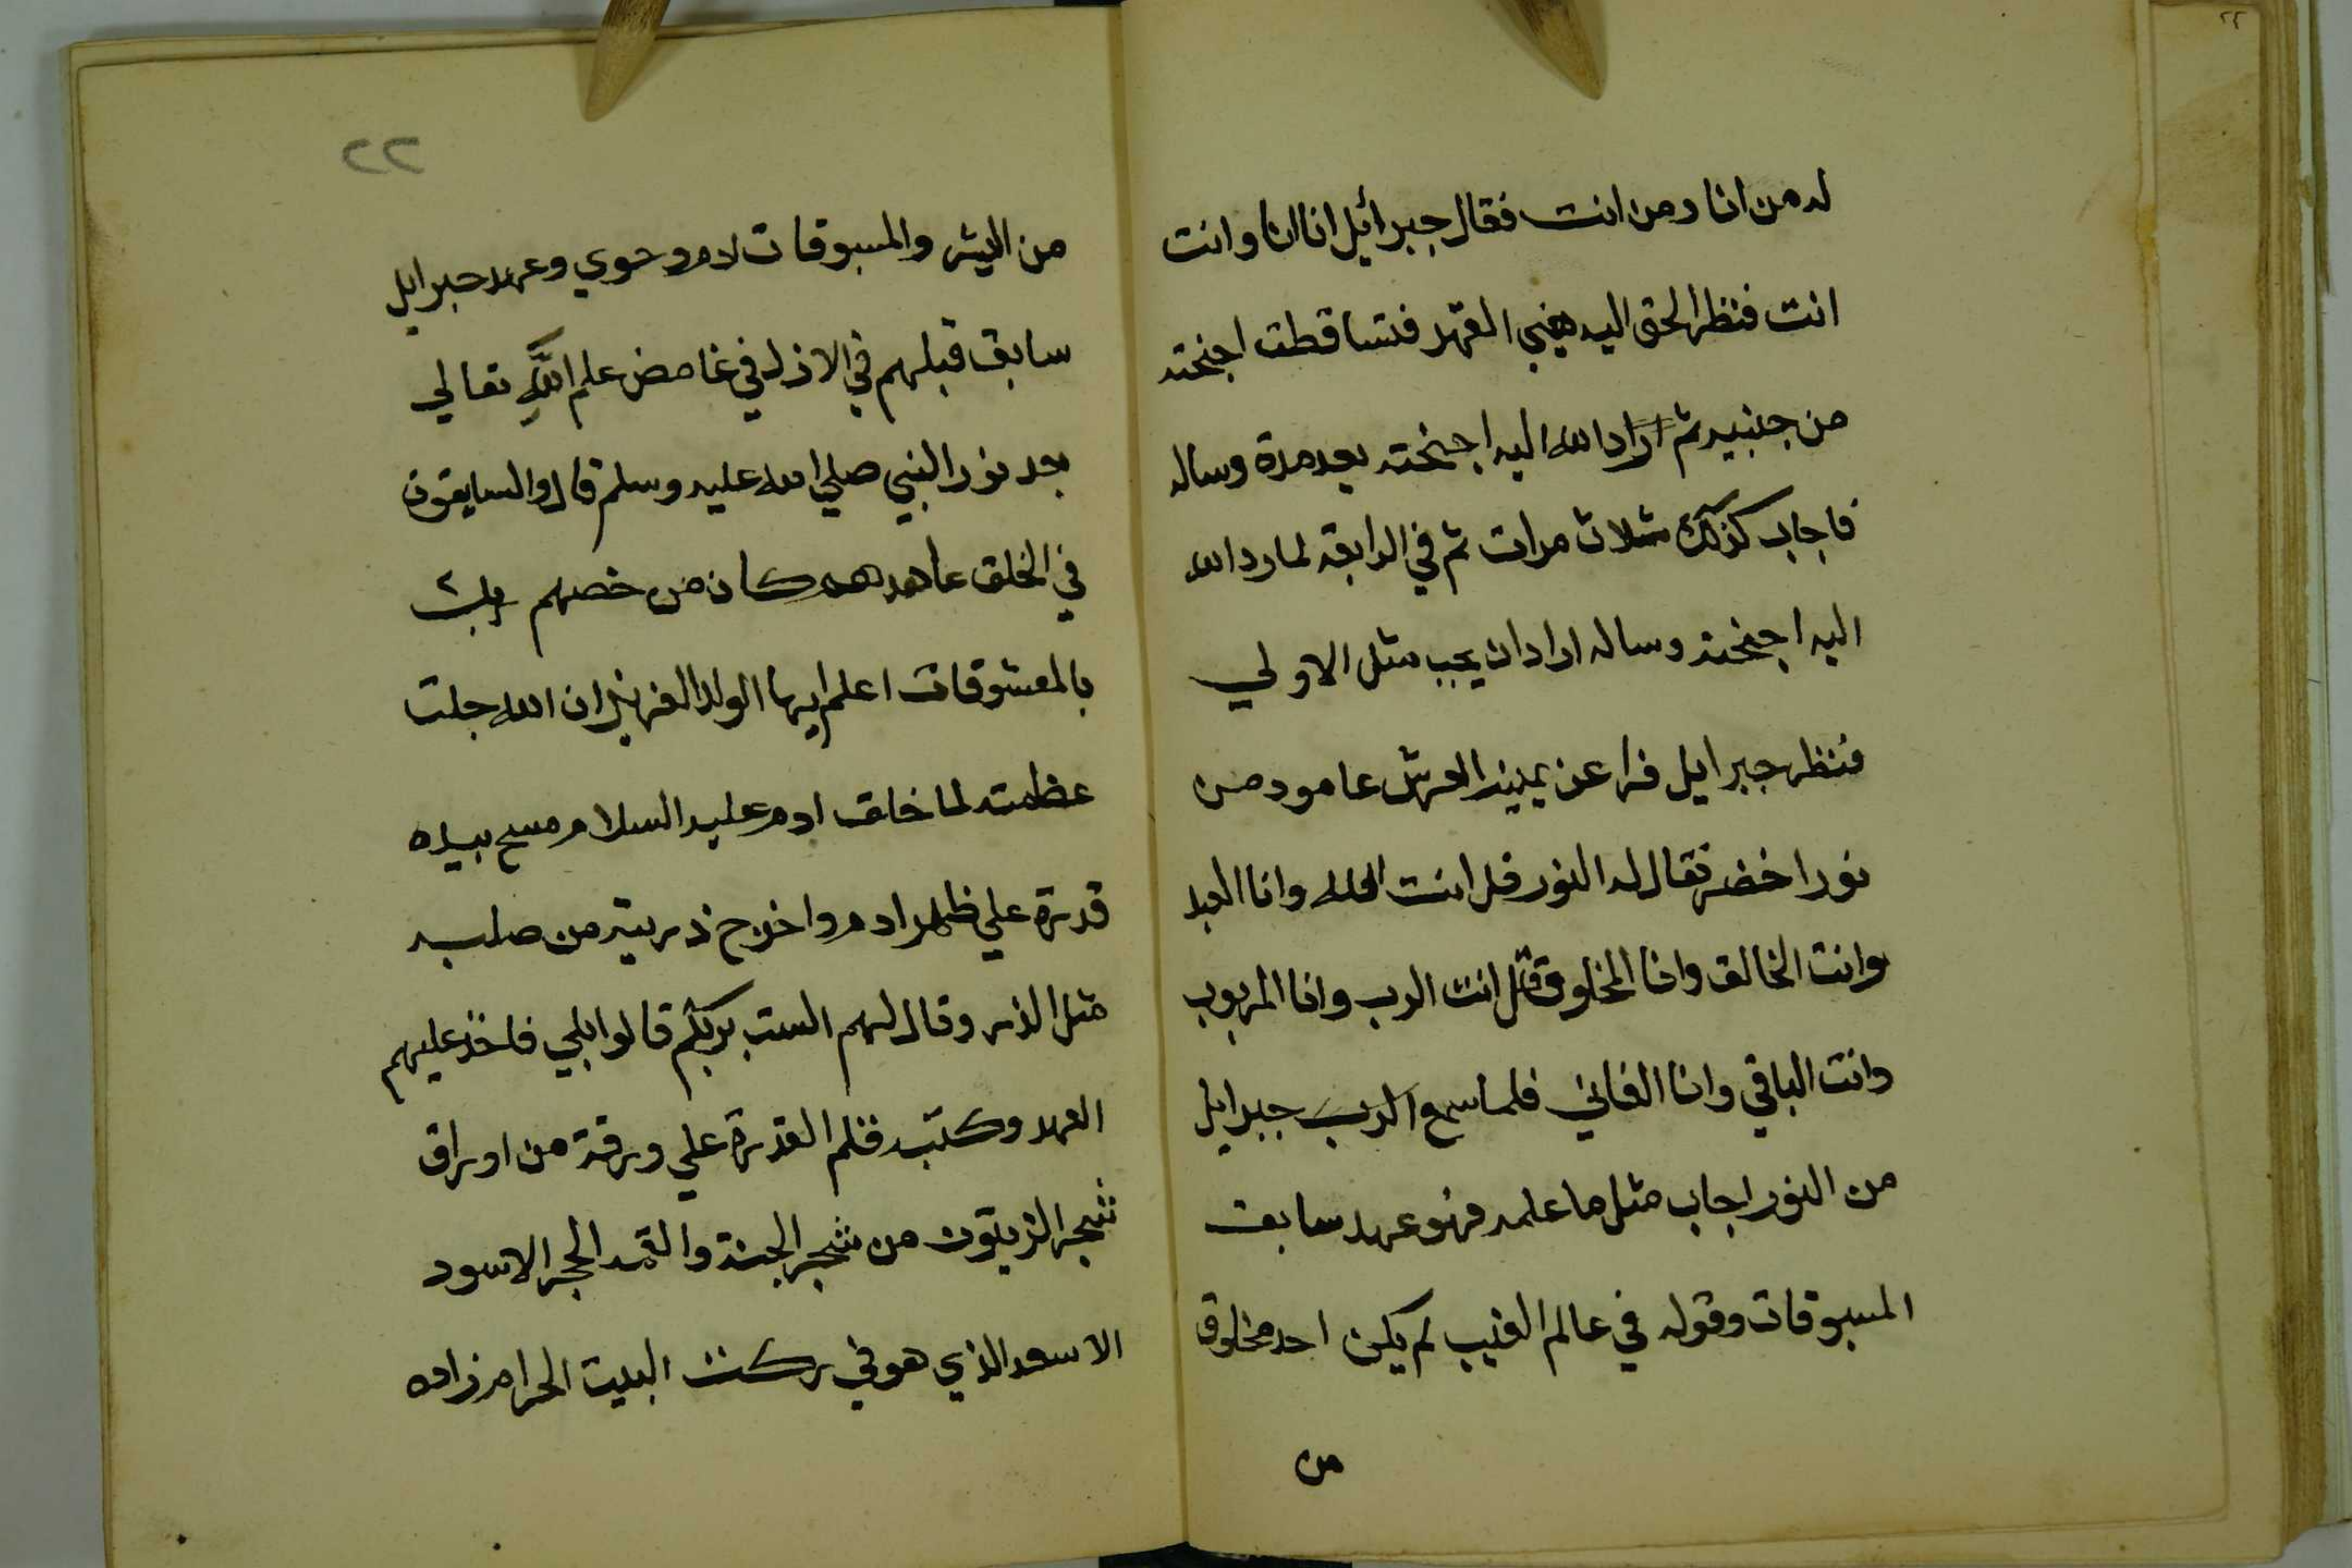 له من انا ومن انت فقال جبرائيل انا انا وانت
انت فنظر الحق اليه القهر فتساقطت اجنحته
من جنبيه ثم اراد الله اليه اجنحته بعد مدة وساله
فاجاب كذلك ثلاث مرات ثم في الرابعة لما رد الله
اليه اجنحته وساله اراد ان يجب مثل الاولي
فنظر جبرايل فرا عن يمين العرش عامود من
نور اخضر فقال له النور قل انت الله وانا العبد
وانت الخالق وانا المخلوق قل انت الرب وانا المربوب
وانت الباقي وانا الفاني فلما سمع الرب جبرايل
من النور اجاب مثل ما علمه فهو عهد سابق
المسبوقات وقوله في عالم الغيب لم يكن احد مخلوق
من
٢٢
من البشر والمسبوقات لادم وحوي وعهد جبرايل
سابق قبلهم في الازل في غامض علم الله تعالي
بعد نور النبي صلي الله عليه وسلم قال والسابقون
في الخلق عاهدهم كان من خصهم
بالمعشوقات اعلم ايها الولد العزيز ان الله جلت
عظمته لما خلق ادم عليه السلام مسح بيده
قدرة علي ظهر ادم واخرج ذريته من صلبه
مثل الذر وقال لهم الست بربكم قالوا بلي فاخذ عليهم
العهد وكتبه قلم القدرة علي ورقة من اوراق
شجر الزيتون من شجر الجنة والقمه الحجر الاسود
الاسعد الذي هو في ركن البيت الحرام زاده